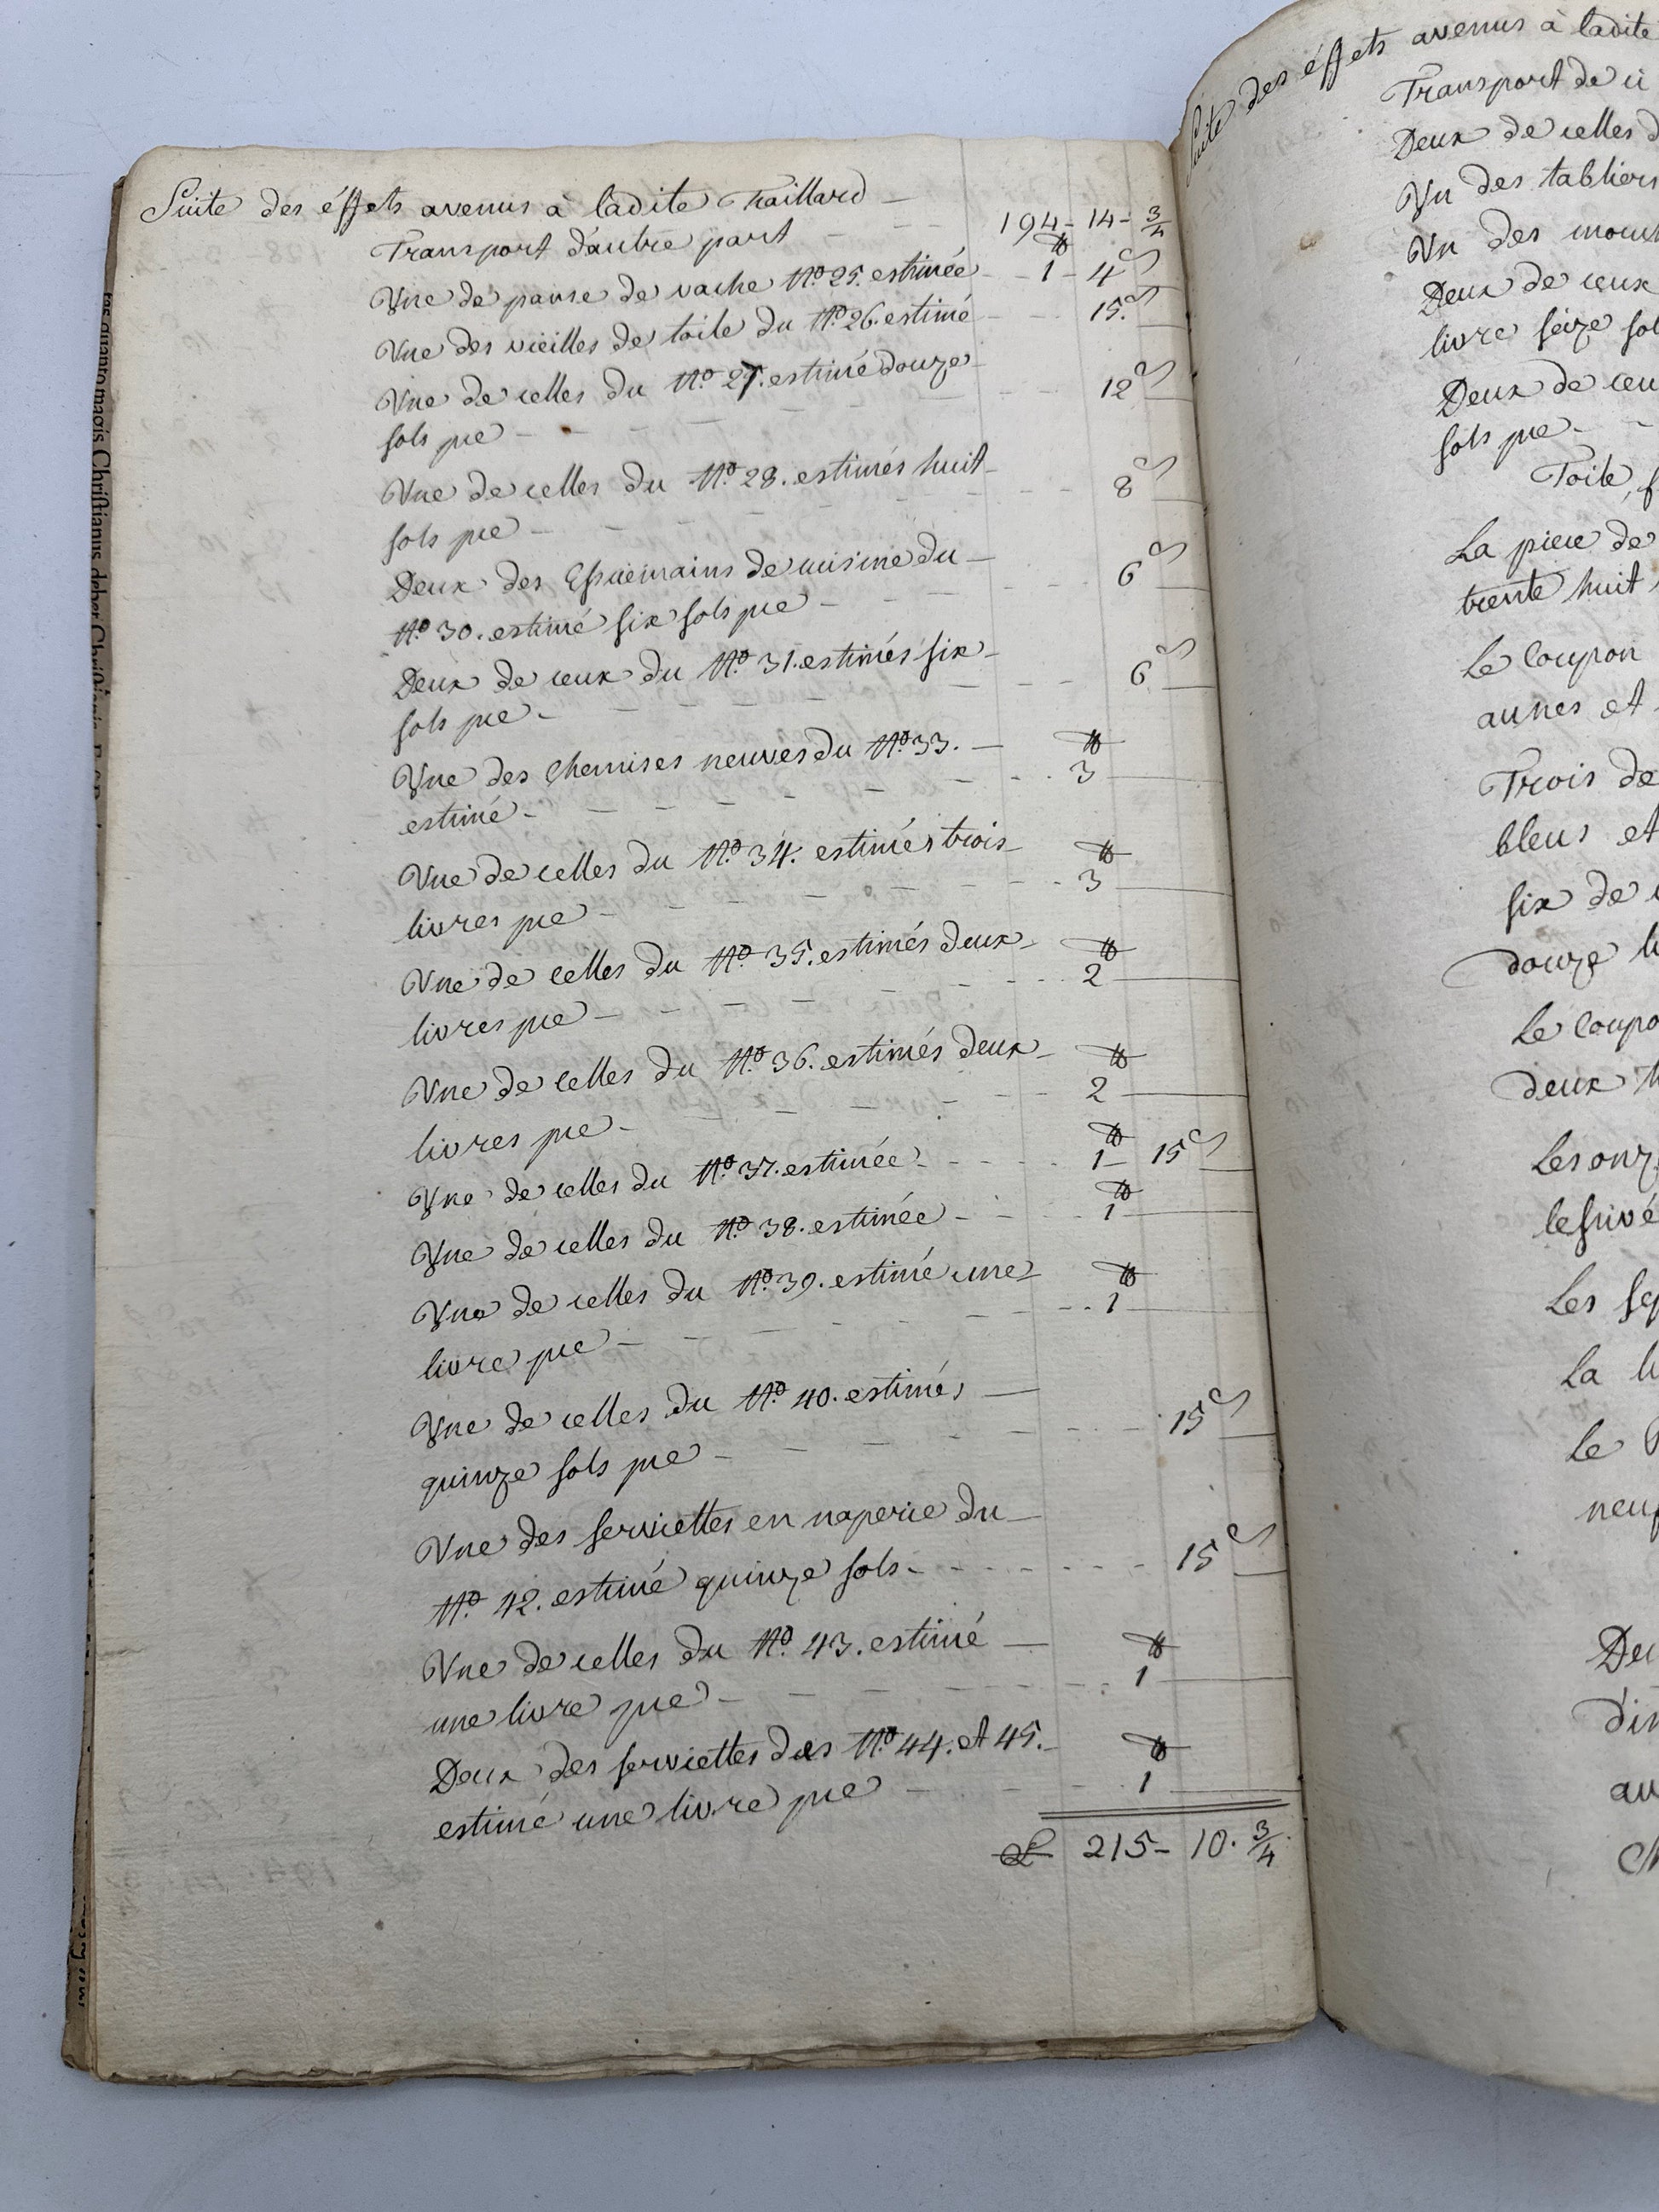 Suite des éffets avenus à ladite Taillard
Transport d'autre part - - - 194 - 14 - 3/4
Vne de panse de vache No. 25. estimée - - 1 - 4 s
Vne des vieilles de toile du No. 26. estimé - - 15. s
Vne de celles du No. 27. estimé douze
sols pce - - - 12 s
Vne de celles du No. 28. estimés huit
sols pce - - - 8 s
Deux des Essuiemains de cuisine du
No. 30. estimé six sols pce - - - 6 s
Deux de ceux du No. 31. estimés six
sols pce - - - 6 s
Vne des Chemises neuves du No. 33.
estimé - - - 3
Vne de celles du No. 34. estimés trois
livres pce - - - 3
Vne de celles du No. 35. estimés deux
livres pce - - - 2
Vne de celles du No. 36. estimés deux
livres pce - - - 2
Vne de celles du No. 37. estimée - - - 1 - 15 s
Vne de celles du No. 38. estimée - - - 1
Vne de celles du No. 39. estimé une
livre pce - - - 1
Vne de celles du No. 40. estimés
quinze sols pce - - - 15 s
Vne des serviettes en naperie du
No. 42. estimé quinze sols - - - 15 s
Vne de celles du No. 43. estimé
une livre pce - - - 1
Deux des serviettes des No. 44. et 45.
estimé une livre pce - - - 1
L 215 - 10. 3/4
Suite des éffets avenus à ladite
Transport de ci
Deux de celles d
Vn des tabliers
Vn des mouch
Deux de ceux
livre seize sol
Deux de ceu
sols pce
Toile,
La piece de
trente huit
Le Coupon
aunes et
Trois de
bleus et
six de
douze li
Le Coupo
deux
Les onz
lessivé
Les sep
La li
Le
neuf
Deu
d'in
au
quanto magis Christianus debet